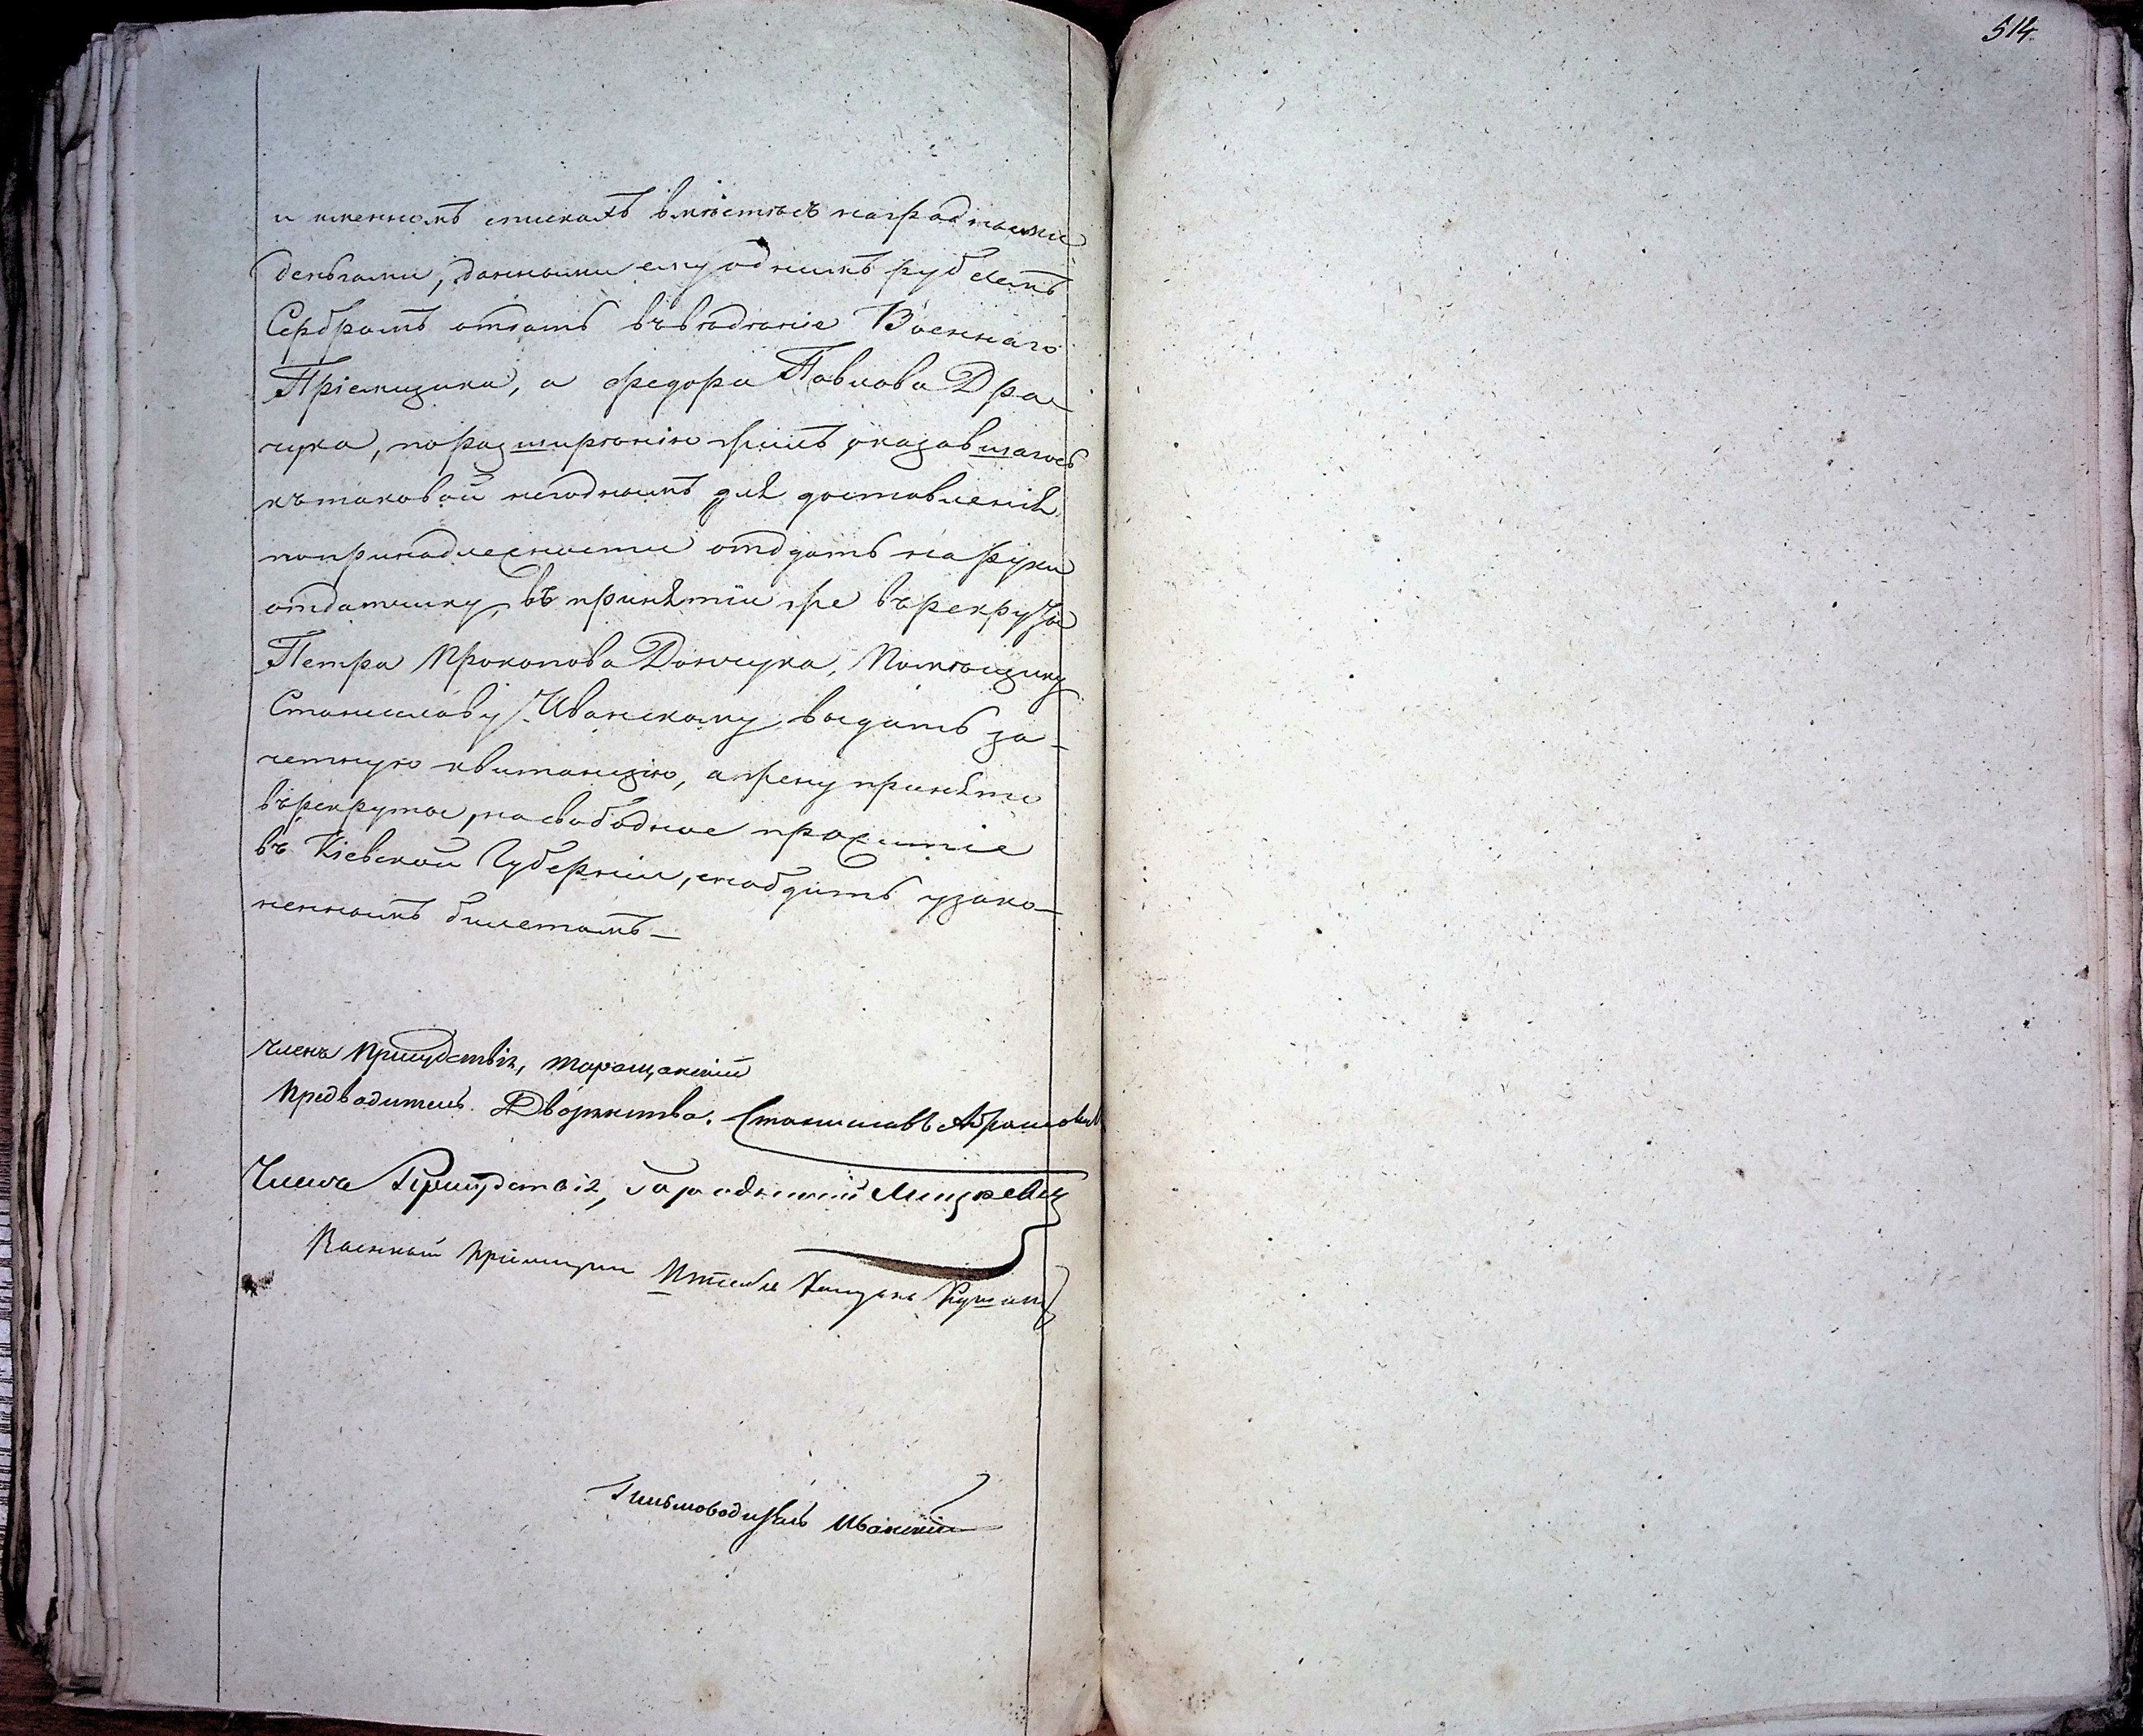 514
и именномъ спискахъ вмѣстѣ съ наградными
деньгами, данными ему однимъ рублемъ
Серебромъ отдать въ вѣденіе Военнаго
Пріемщика, а Федора Павлова Дра
чука, по разширенію жилъ, оказавшагося
къ таковой негоднымъ для доставленія
по принадлежности отдать на руки
отдатчику, въ принятіи же въ рекруты
Петра Прокопова Дончука, Помѣщику
Станиславу Иванскому выдать за-
четную квитанцію, а жену принято
въ рекруты, на свободное прожитіе
въ Кіевской Губерніи, снабдить узако-
неннымъ билетомъ—
Членъ Присудствія, Таращанскій
Предводитель Дворянства. Станиславъ Абрамович
Членъ Присудствія, Городничій
Военный Пріемщикъ Капитанъ
Письмоводитель Иванскій